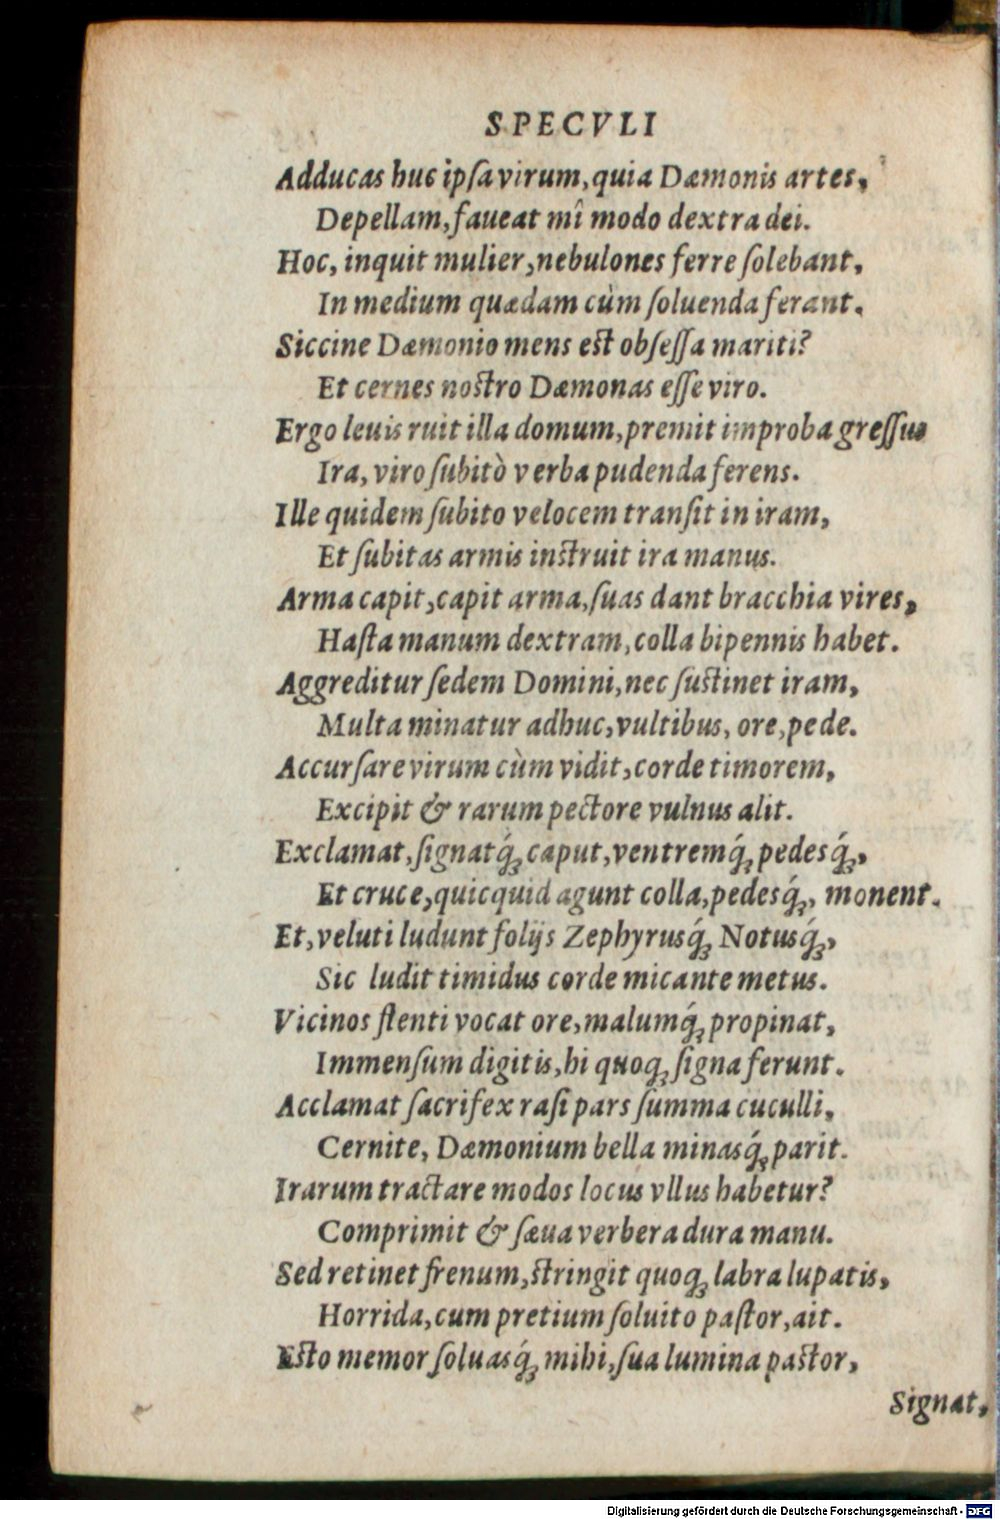 SPECVLI
Adducas huc ipſa virum, quia Dæmonis artes,
Depellam, faueat mî modo dextra dei.
Hoc, inquit mulier, nebulones ferre ſolebant,
In medium quædam cùm ſoluenda ferant.
Siccine Dæmonio mens eſt obſeſſa mariti?
Et cernes noſtro Dæmonas eſſe viro.
Ergo leuis ruit illa domum, premit improba greſſus
Ira, viro ſubitò verba pudenda ferens.
Ille quidem ſubito velocem tranſit in iram,
Et ſubitas armis inſtruit ira manus.
Arma capit, capit arma, ſuas dant bracchia vires,
Haſta manum dextram, colla bipennis habet.
Aggreditur ſedem Domini, nec ſuſtinet iram,
Multa minatur adhuc, vultibus, ore, pede.
Accurſare virum cùm vidit, corde timorem,
Excipit & rarum pectore vulnus alit.
Exclamat, ſignatq́ꝫ caput, ventremq́ꝫ pedesq́ꝫ,
Et cruce, quicquid agunt colla, pedesq́ꝫ, monent.
Et, veluti ludunt folijs Zephyrusq́ꝫ Notusq́ꝫ,
Sic ludit timidus corde micante metus.
Vicinos flenti vocat ore, malumq́ꝫ propinat,
Immenſum digitis, hi quoqꝫ ſigna ferunt.
Acclamat ſacrifex raſi pars ſumma cuculli,
Cernite, Dæmonium bella minasq́ꝫ parit.
Irarum tractare modos locus vllus habetur?
Comprimit & ſæua verbera dura manu.
Sed retinet frenum, ſtringit quoqꝫ labra lupatis,
Horrida, cum pretium ſoluito paſtor, ait.
Eſto memor ſoluasq́ꝫ mihi, ſua lumina paſtor,
Signat,
Digitalisierung gefördert durch die Deutsche Forschungsgemeinschaft - DFG